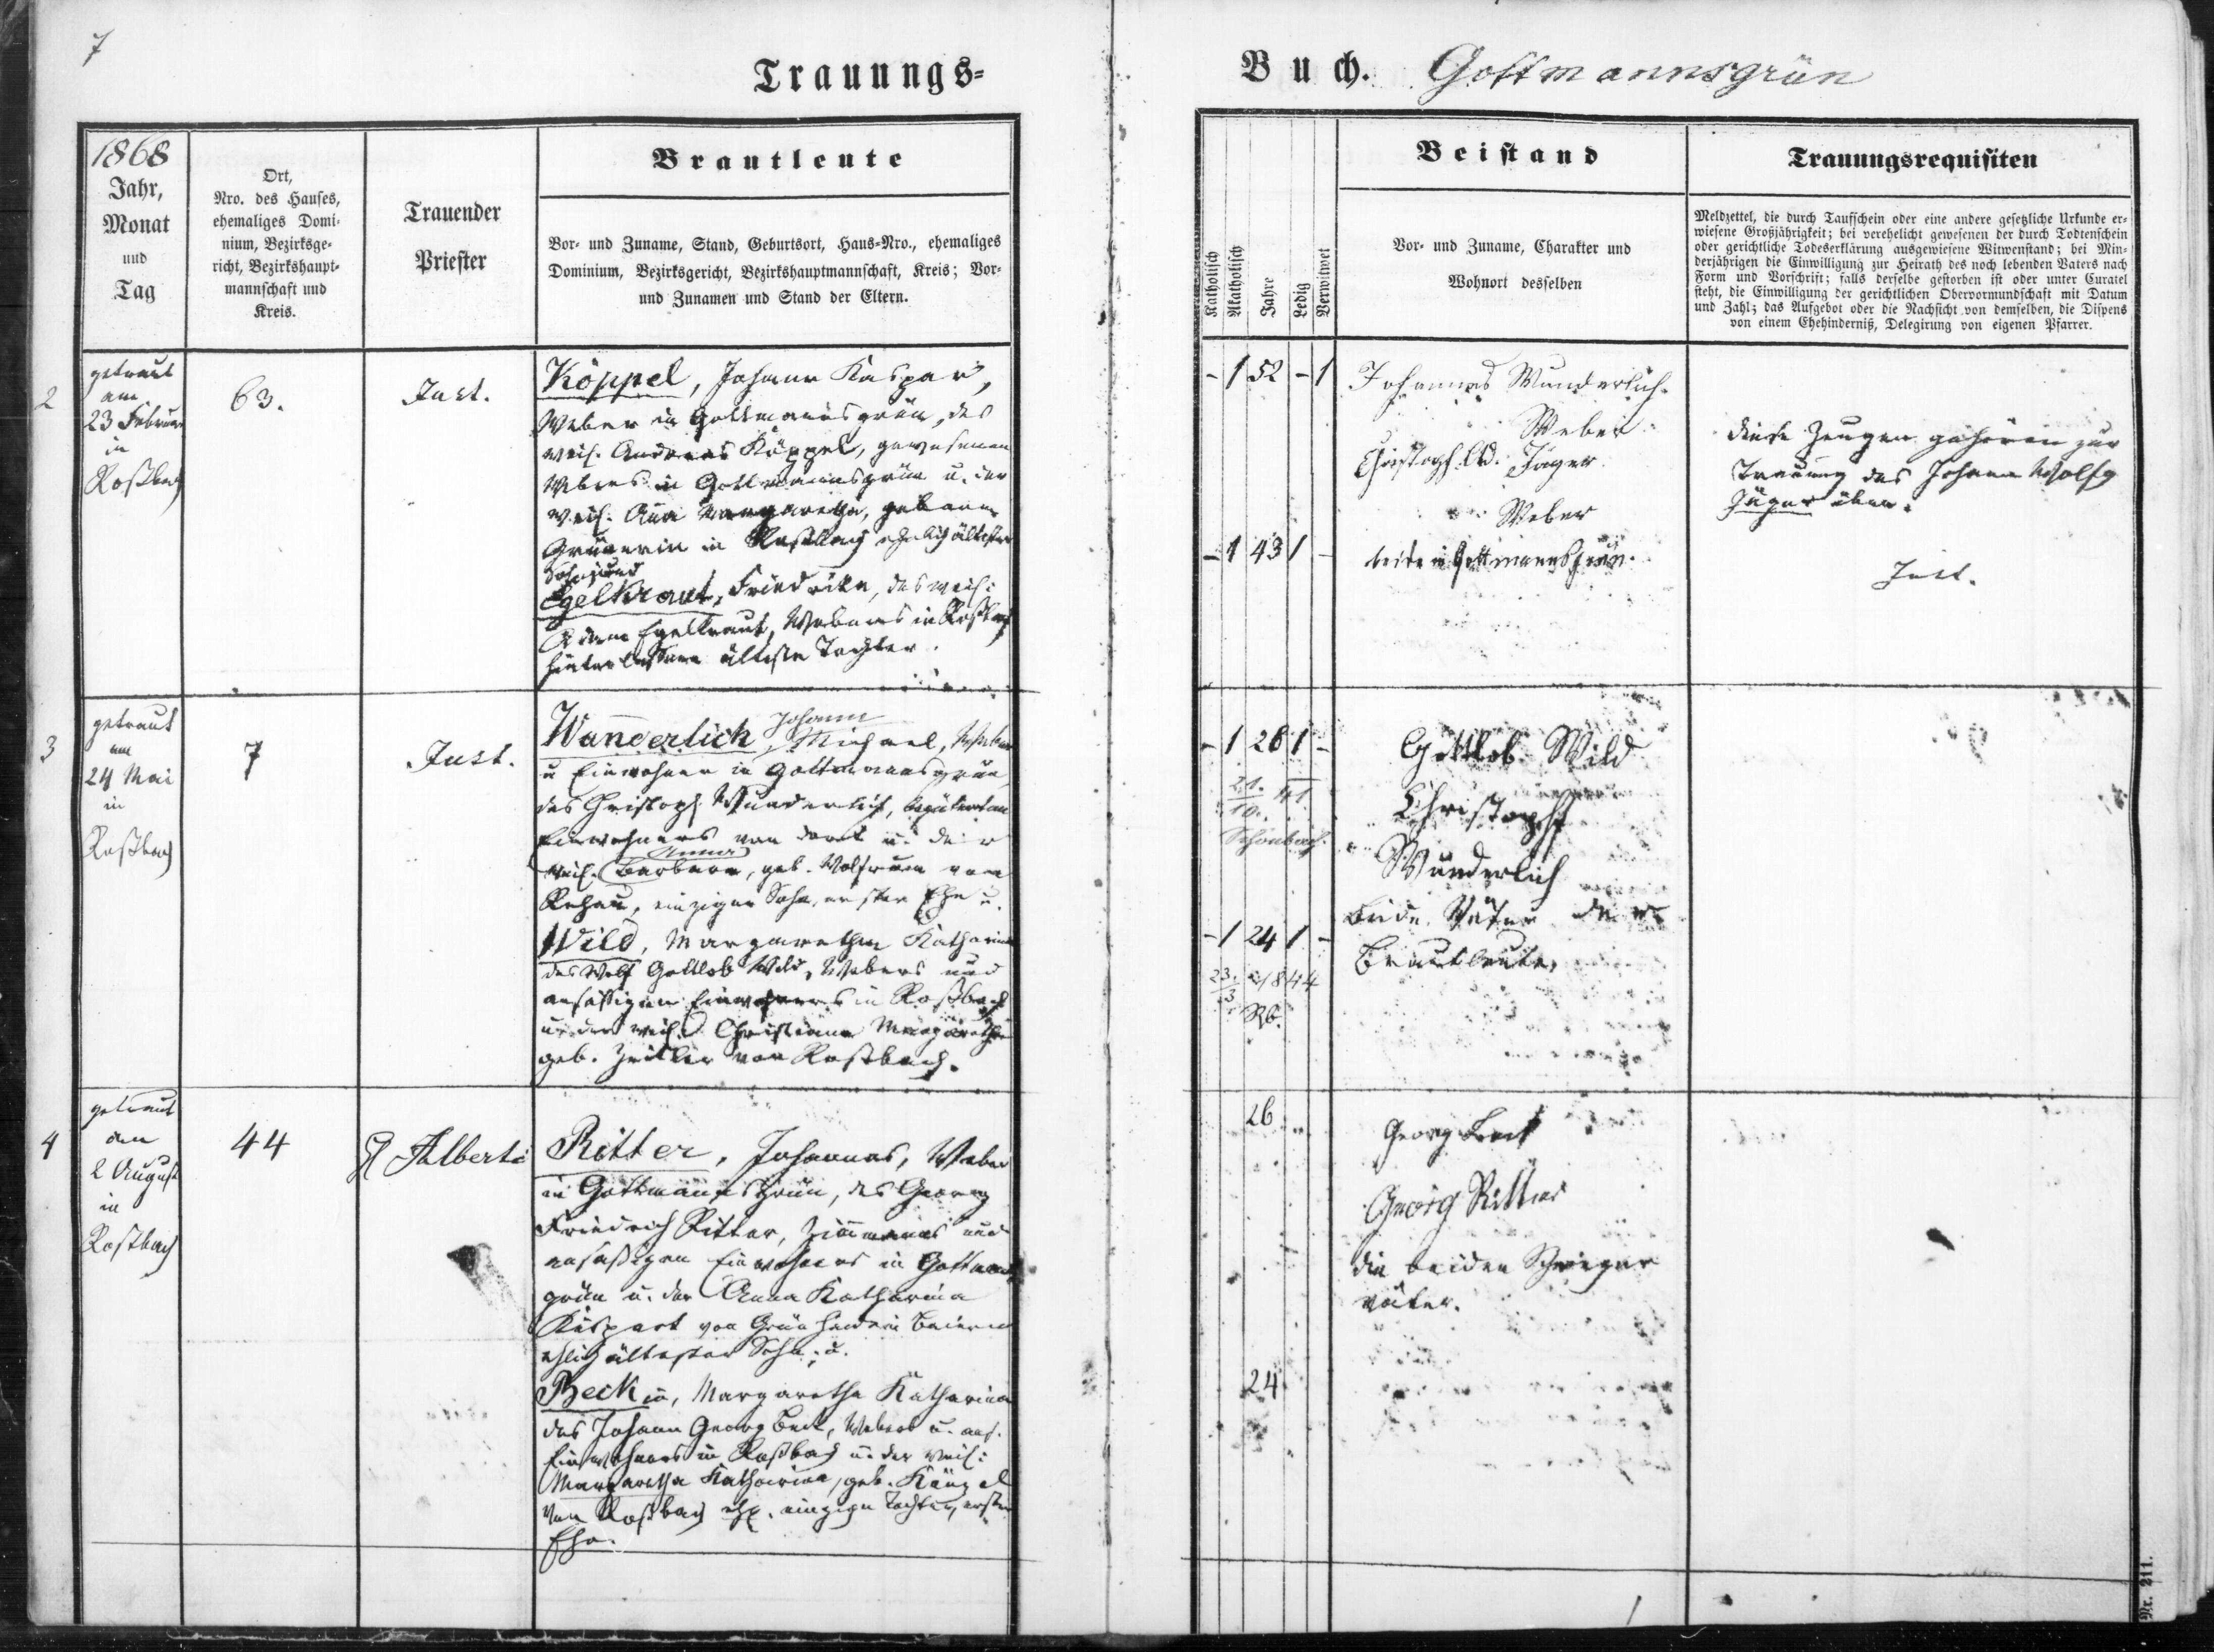 7
Trauungs-
Buch. Gottmannsgrün
1868
Jahr,
Monat
und
Tag
Ort,
Nro. des Hauses,
ehemaliges Domi-
nium, Bezirksge-
richt, Bezirkshaupt-
mannschaft und
Kreis.
Trauender
Priester
Brautleute
Vor- und Zuname, Stand, Geburtsort, Haus-Nro., ehemaliges
Dominium, Bezirksgericht, Bezirkshauptmannschaft, Kreis; Vor-
und Zunamen und Stand der Eltern.
Katholisch
Akatholisch
Jahre
Ledig
Verwitwet
Beistand
Vor- und Zuname, Charakter und
Wohnort desselben
Trauungsrequisiten
Meldzettel, die durch Taufschein oder eine andere gesetzliche Urkunde er-
wiesene Großjährigkeit; bei verehelicht gewesenen der durch Todtenschein
oder gerichtliche Todeserklärung ausgewiesene Witwenstand; bei Min-
derjährigen die Einwilligung zur Heirath des noch lebenden Vaters nach
Form und Vorschrift; falls derselbe gestorben ist oder unter Curatel
steht, die Einwilligung der gerichtlichen Obervormundschaft mit Datum
und Zahl; das Aufgebot oder die Nachsicht von demselben, die Dispens
von einem Ehehinderniß, Delegirung von eigenen Pfarrer.
2
getraut
am
23 Februar
in
Roßbach
63.
Just.
Köppel, Johann Kaspar,
Weber in Gottmannsgrün, des
weil. Andreas Köppel, gewesenen
Webers in Gottmannsgrün u. der
weil. Anna Margaretha, geborne
Grünerin in Roßbach ehelich ältester
Sohn; und
Egelkraut, Friedrike, des weil:
Adam Egelkraut, Webers in Roßbach
hinterlassene älteste Tochter.
- 1 52 - 1
- 1 43 1 -
Johannes Wunderlich
Weber
Christoph Ad. Jäger
Weber
beide in Gottmannsgrün.
diese Zeugen gehören zur
Trauung des Johann Wolfg
Jäger oben.
Just.
3
getraut
am
24 Mai
in
Roßbach
7
Just.
Johann
Wunderlich, Michael, Weber
u Einwohner in Gottmannsgrün
des Christoph Wunderlich,
Einwohners von dort u. der
Anna
weil. Barbara, geb. Wolfrum von
Rehau, einziger Sohn, erster Ehe u.
Wild, Margaretha Katharina
des Wolf Gottlob Wild, Webers und
ansässigen Einwohners in Roßbach
u. der weil. Christiana Margaretha
geb. Zeitler von Roßbach.
- 1 26 1 -
21. 41
10.
Schönbach.
- 1 24 1 -
23. 1844
3
Rb.
Gottlob Wild
Christoph
Wunderlich
beide Väter der
Brautleute.
4
getraut
am
2 August
in
Roßbach
44
Alberti
Ritter, Johannes, Weber
in Gottmannsgrün, des Georg
Friedrich Ritter, Zimmermanns und
ansäßigen Einwohners in Gottmanns
grün u. der Anna Katharina
von Baiern
ehelich ältester Sohn; u.
Beckin, Margaretha Katharina
des Johann Georg Beck, Webers u. ans.
Einwohners in Roßbach u. der weil:
Margaretha Katharina, geb. Künzel
von Roßbach ehel. einzige Tochter, erster
Ehe.
26
24
Georg Beck
Georg Ritter
die beiden Schwieger
väter.
Nr. 211.